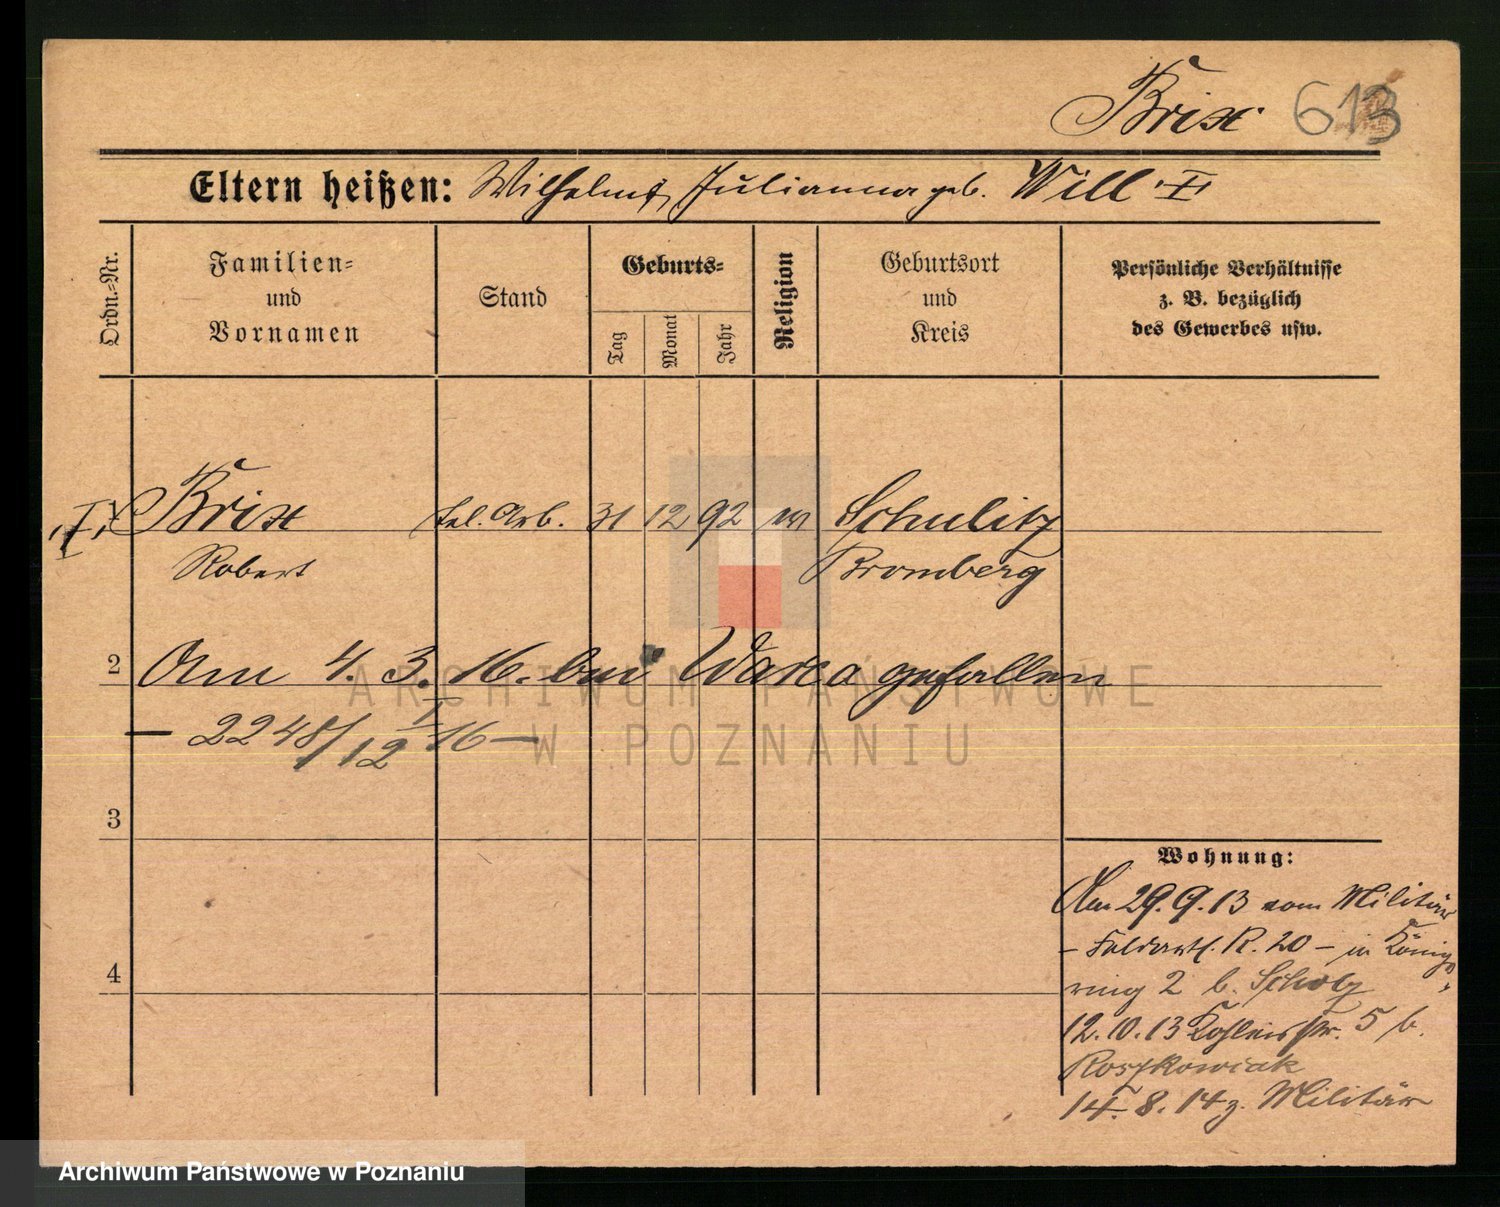 Brix 613
Eltern heißen: Wilhelm, Julianna geb. Will I
Ordn.-Nr.
Familien-
und
Vornamen
Stand
Geburts-
Tag
Monat
Jahr
Religion
Geburtsort
und
Kreis
Persönliche Verhältnisse
z. B. bezüglich
des Gewerbes usw.
I Brix Arb. 31 12 92 Schulitz
Robert Bromberg
2 Am 4. 3. 16. bei gefallen
— 2248/12 I 16 —
3
4
Wohnung:
Am 29.9.13 vom Militär
– Feldartl. R. 20 – in Königs
ring 2 b. Scholz
12.10.13 str. 5 b.
Roszkowiak
14.8.14 z. Militär
ARCHIWUM PAŃSTWOWE
W POZNANIU
Archiwum Państwowe w Poznaniu